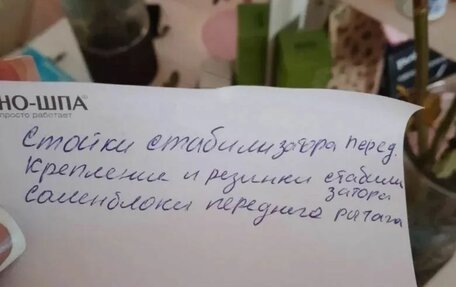 НО-ШПА®
просто работает
Стойки стабилизатора перед.
Крепление и резинки стабили
затора
Саленблоки переднего рычага